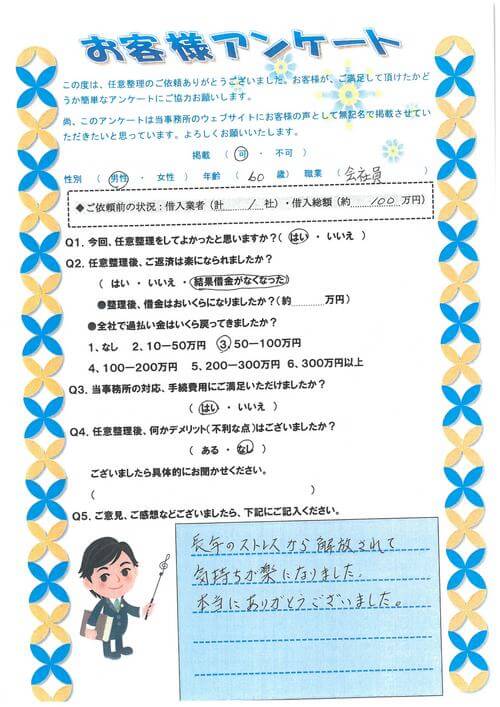 お客様アンケート
この度は、任意整理のご依頼ありがとうございました。お客様が、ご満足して頂けたかど
うか簡単なアンケートにご協力お願いします。
尚、このアンケートは当事務所のウェブサイトにお客様の声として無記名で掲載させてい
ただきたいと思っています。よろしくお願いいたします。
掲載 ( 可 ・ 不可 )
性別 ( 男性 ・ 女性 ) 年齢 ( 60 歳) 職業 ( 会社員 )
◆ご依頼前の状況:借入業者(計 1 社)・借入総額(約 100 万円)
Q1. 今回、任意整理をしてよかったと思いますか?( はい ・ いいえ )
Q2. 任意整理後、ご返済は楽になられましたか?
( はい ・ いいえ ・ 結果借金がなくなった )
●整理後、借金はおいくらになりましたか?(約 万円)
●全社で過払い金はいくら戻ってきましたか?
1、なし 2、10-50万円 3、50-100万円
4、100-200万円 5、200-300万円 6、300万円以上
Q3. 当事務所の対応、手続費用にご満足いただけましたか?
( はい ・ いいえ )
Q4. 任意整理後、何かデメリット(不利な点)はございましたか?
( ある ・ なし )
ございましたら具体的にお聞かせください。
( )
Q5. ご意見、ご感想などございましたら、下記にご記入ください。
長年のストレスから解放されて
気持ちが楽になりました。
本当にありがとうございました。